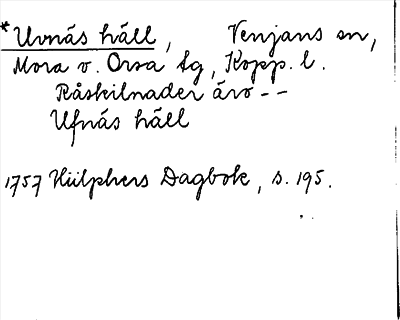 * Uvnäs häll, Venjans sn,
Mora o. Orsa tg, Kopp. l.
Råskilnader äro --
Ufnäs häll
1757 Hülphers Dagbok, s. 195.